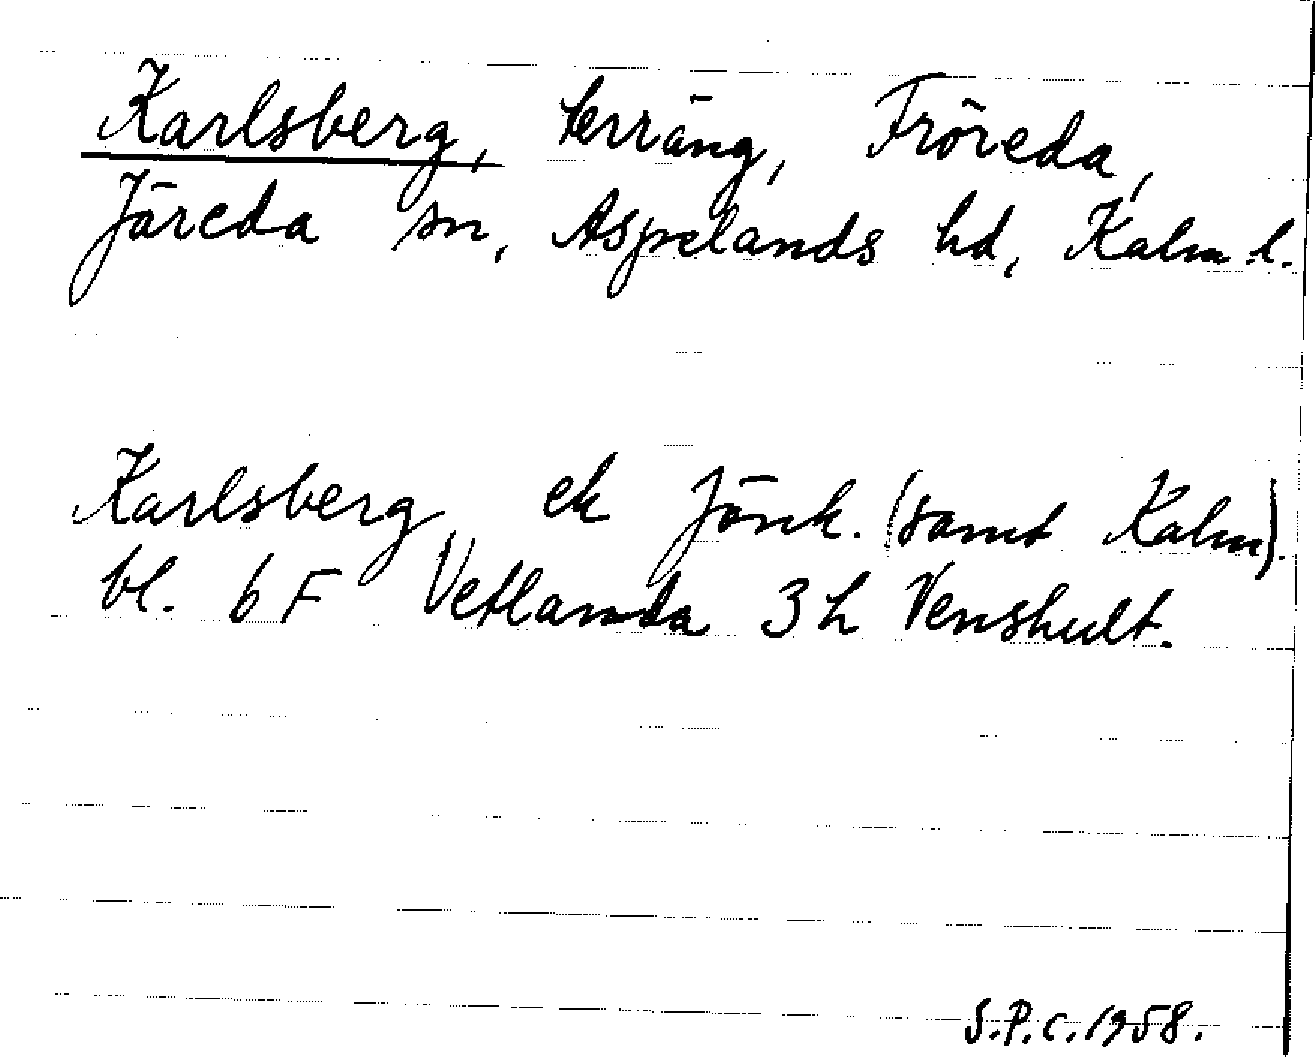 Karlsberg, terräng, Fröreda,
Järeda sn, Aspelands hd, Kalm l.
Karlsberg ek Jönk. (samt Kalm).
bl. 6 F Vetlanda 3 h Venshult.
S.P.C. 1958.